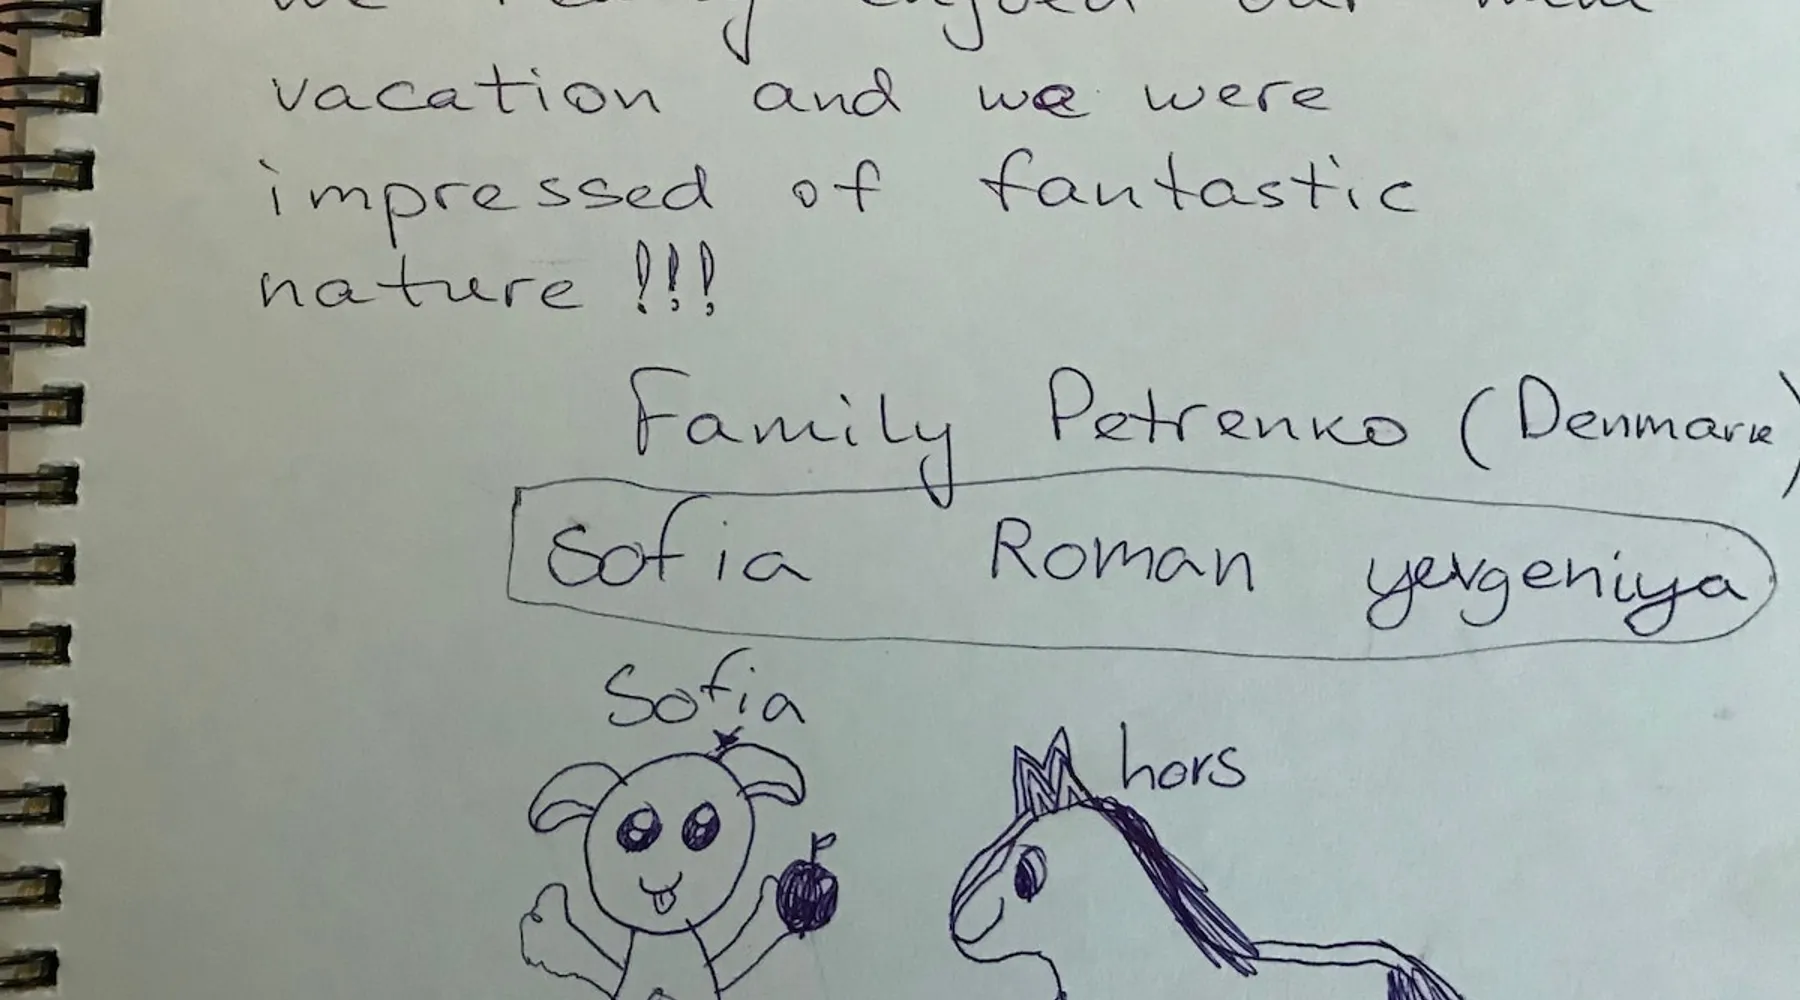 we really enjoed our mini
vacation and we were
impressed of fantastic
nature !!!
Family Petrenko (Denmark)
Sofia Roman yevgeniya
Sofia
hors